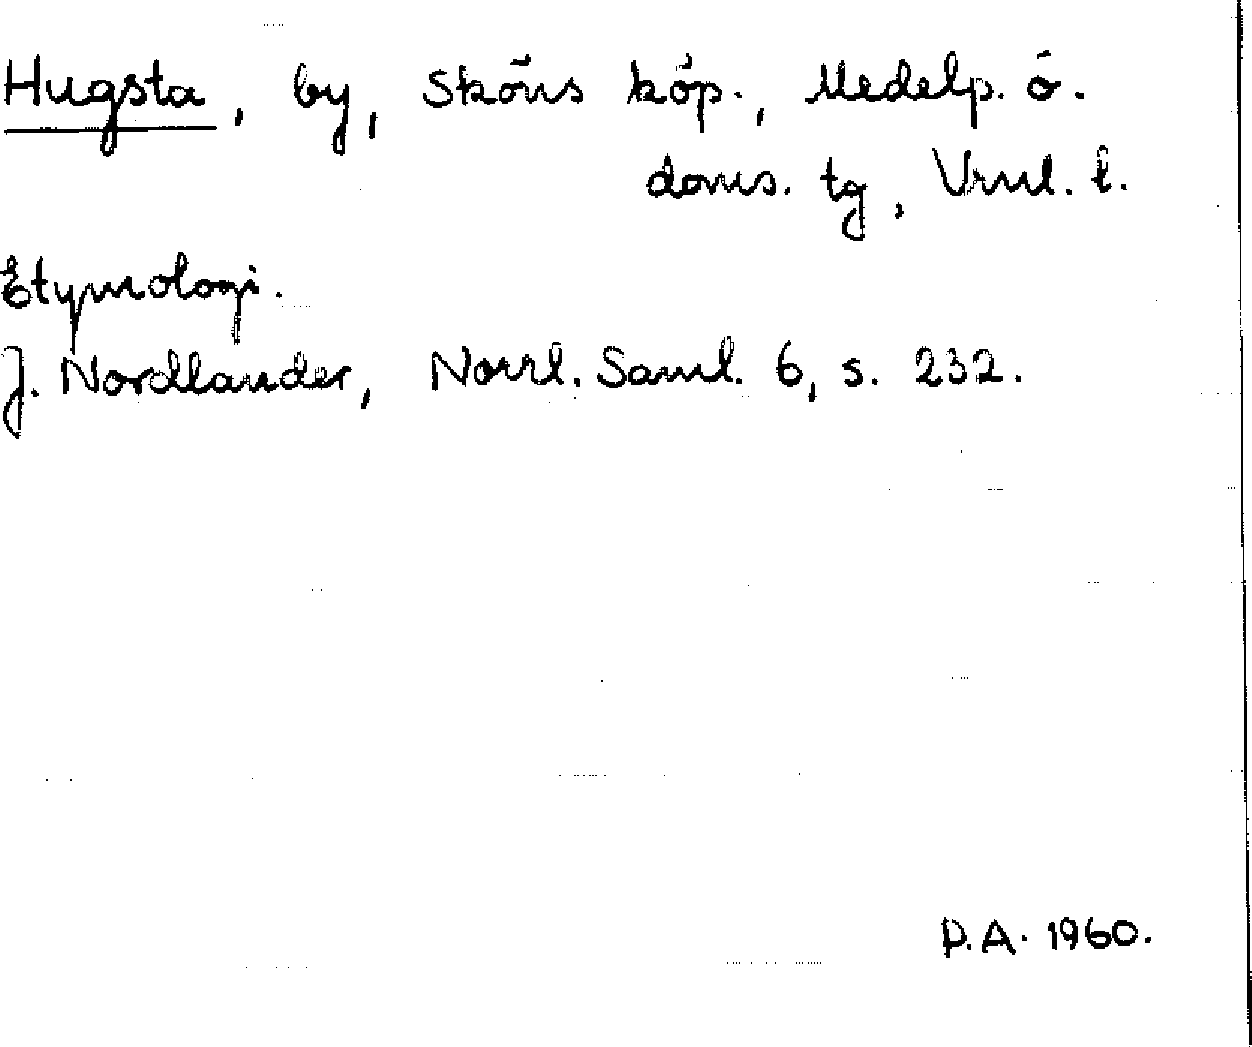 Hugsta, by, Sköns köp., Medelp. ö.
doms. tg, Vrnl. l.
Etymologi.
J. Nordlander, Norrl. Saml. 6, s. 232.
P.A. 1960.